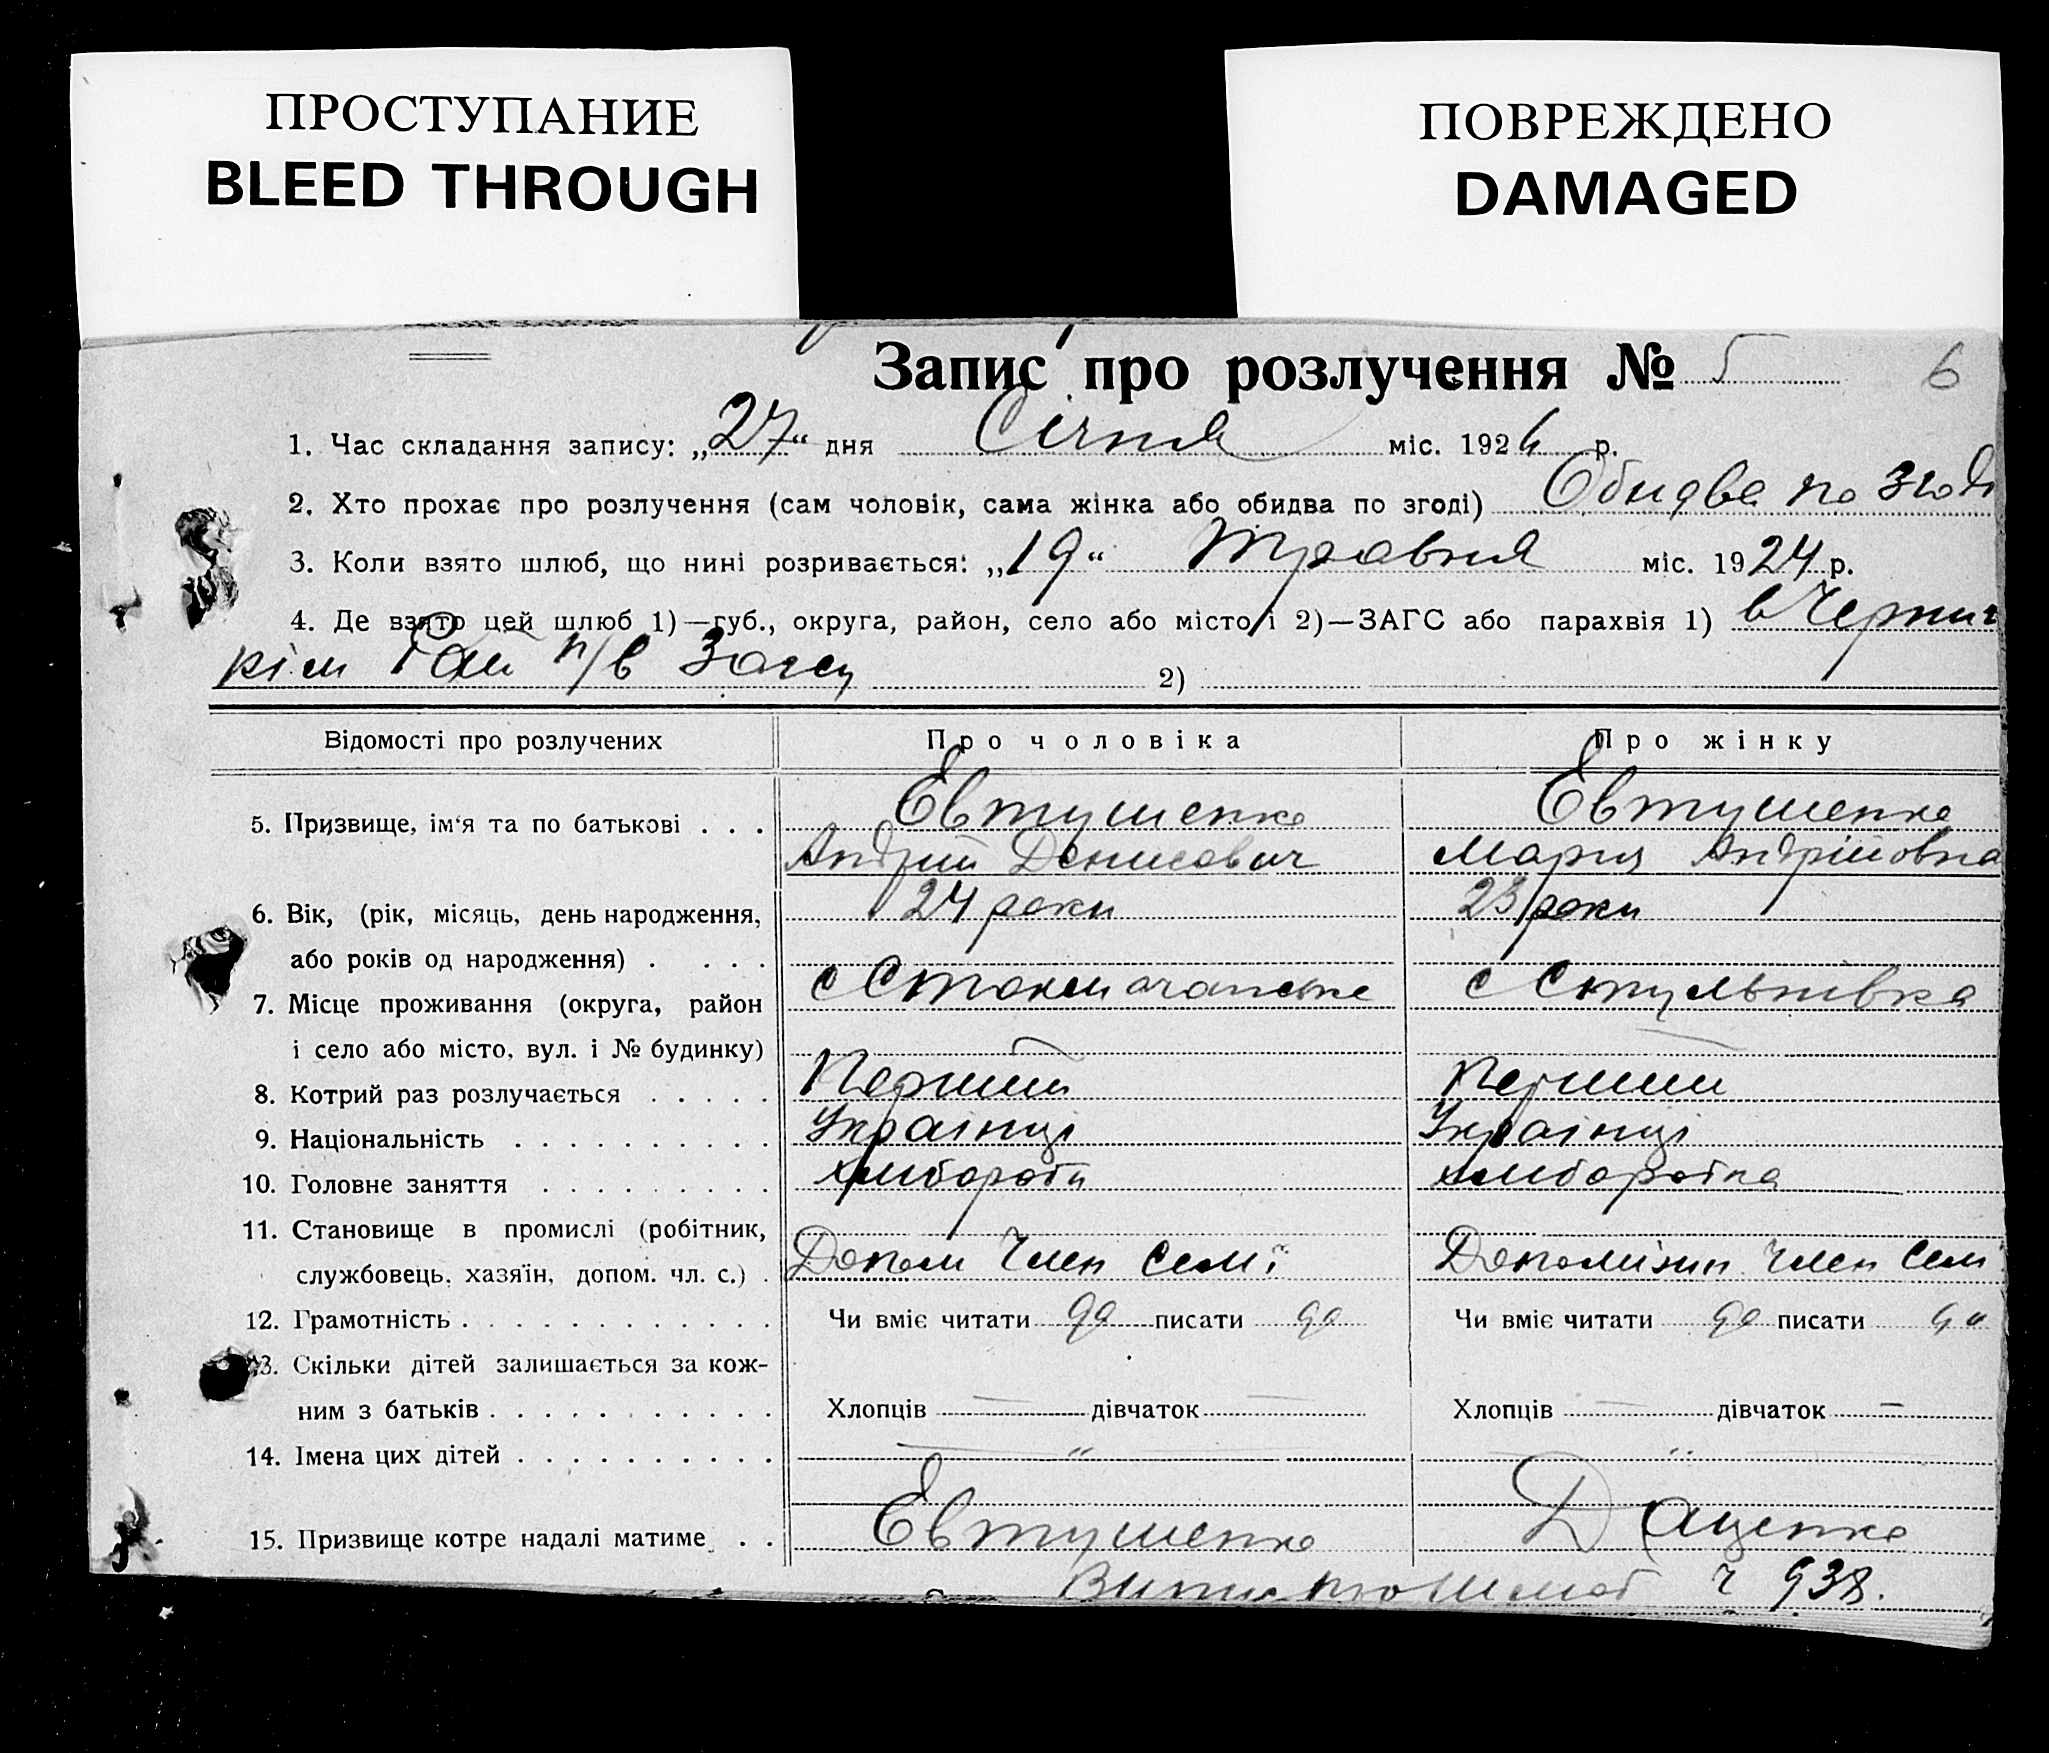 ПРОСТУПАНИЕ
BLEED THROUGH
ПОВРЕЖДЕНО
DAMAGED
Запис про розлучення № 5 6
1. Час складання запису: „27“ дня Січня міс. 1926 р.
2. Хто прохає про розлучення (сам чоловік, сама жінка або обидва по згоді) Обидва по згоді
3. Коли взято шлюб, що нині розривається: „19“ травня міс. 1924 р.
4. Де взято цей шлюб 1)—губ., округа, район, село або місто і 2)—ЗАГС або парахвія 1) в
кім Рай п/в Загсу 2)
Відомості про розлучених Про чоловіка Про жінку
5. Призвище, ім'я та по батькові . . . Евтушенко Евтушенко
Андрій Денисович Мария Андрійовна
6. Вік, (рік, місяць, день народження, 24 роки 23 роки
або років од народження) . . . .
7. Місце проживання (округа, район с с
і село або місто, вул. і № будинку)
8. Котрий раз розлучається . . . . . Перший Перший
9. Національність . . . . . . . . . . Українці Українці
10. Головне заняття . . . . . . . . . хлибороби хлиборобка
11. Становище в промислі (робітник,
службовець, хазяїн, допом. чл. с.) . Допом член семї член
12. Грамотність . . . . . . . . . . . . Чи вміє читати да писати да Чи вміє читати да писати да
13. Скільки дітей залишається за кож-
ним з батьків . . . . . . . . . . . Хлопців — дівчаток — Хлопців — дівчаток —
14. Імена цих дітей . . . . . . . . . . — " —
15. Призвище котре надалі матиме . . Евтушенко Даценко
ч 938.